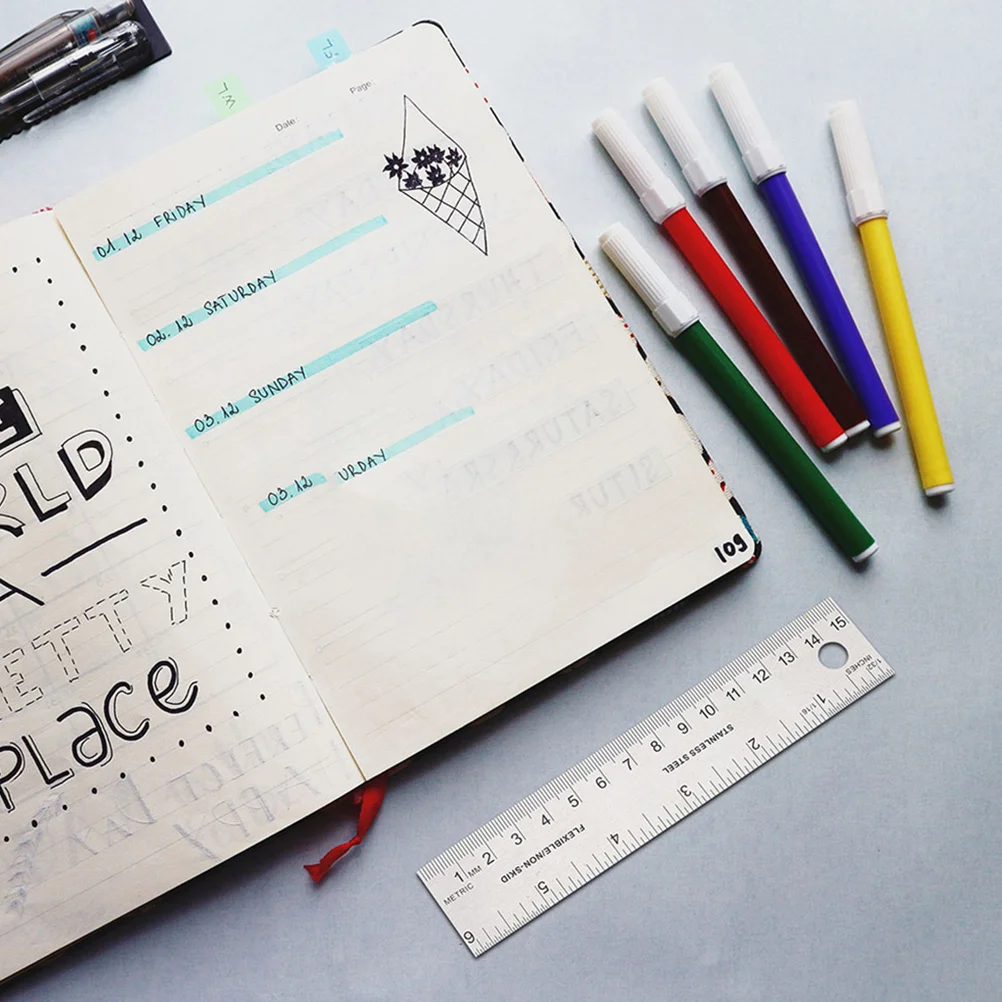 Date:
Page:
01.12 FRIDAY
02.12 SATURDAY
03.12 SUNDAY
03.12 URDAY
109
RLD
A
ETTY
PLace
1 2 3 4 5 6 7 8 9 10 11 12 13 14 15
METRIC MM
FLEXIBLE/NON-SKID
STAINLESS STEEL
INCHES 1/32
1/16
1 2 3 4 5 6